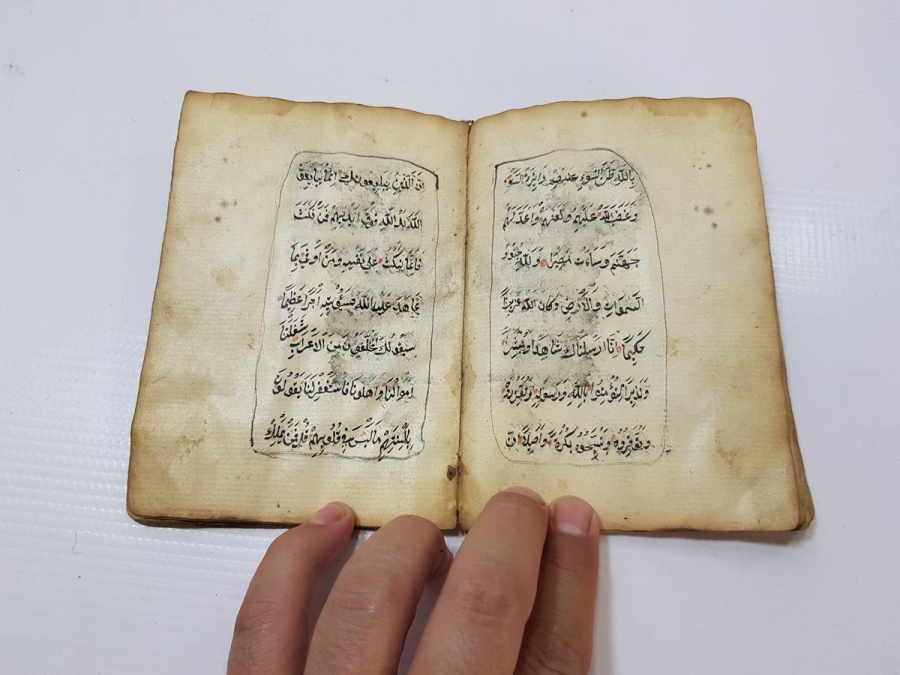 بِاللّٰهِ ظَنَّ السَّوْءِ عليهم دايرة السَّوْءِ
وغضب الله عليهم ولعنهم واعد لهم
جهنم وساءت مصيرا ولله جنود
السموات والارض وكان الله عزيزا
حكيما انا ارسلناك شاهدا ومبشرا
ونذيرا لتؤمنوا بالله ورسوله وتعزروه
وتوقروه وتسبحوه بكرة واصيلا ان
ان الذين يبايعونك انما يبايعون
الله يد الله فوق ايديهم فمن نكث
فانما ينكث على نفسه ومن اوفى بما
عاهد عليه الله فسيؤتيه اجرا عظيما
سيقول لك المخلفون من الاعراب شغلتنا
اموالنا واهلونا فاستغفر لنا يقولون
بالسنتهم ما ليس في قلوبهم قل فمن يملك